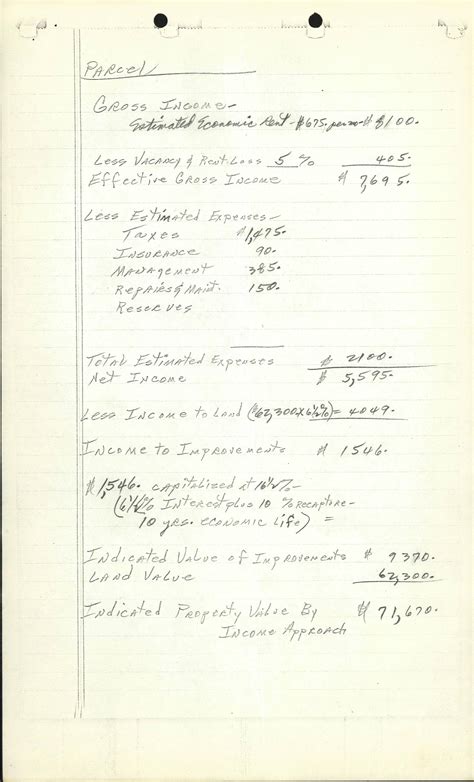 PARCEL
GROSS INCOME-
Estimated Economic Rent - $675. per mo- $ 8100.
Less Vacancy & Rent. Loss 5 % 405.
Effective Gross Income $ 7,695.
Less Estimated Expenses-
Taxes $1,475.
Insurance 90.
Management 385.
Repairs & Maint. 150.
Reserves
Total Estimated Expenses $ 2100.
Net Income $ 5,595-
Less Income to Land ($62,300 x 6½%) = 4049.
Income to Improvements $ 1546.
$1,546. capitalized at 16½%-
(6½% Interest plus 10 % recapture-
10 yrs. economic life) =
Indicated Value of Improvements $ 9370.
Land Value 62,300.
Indicated Property Value By $ 71,670.
Income Approach